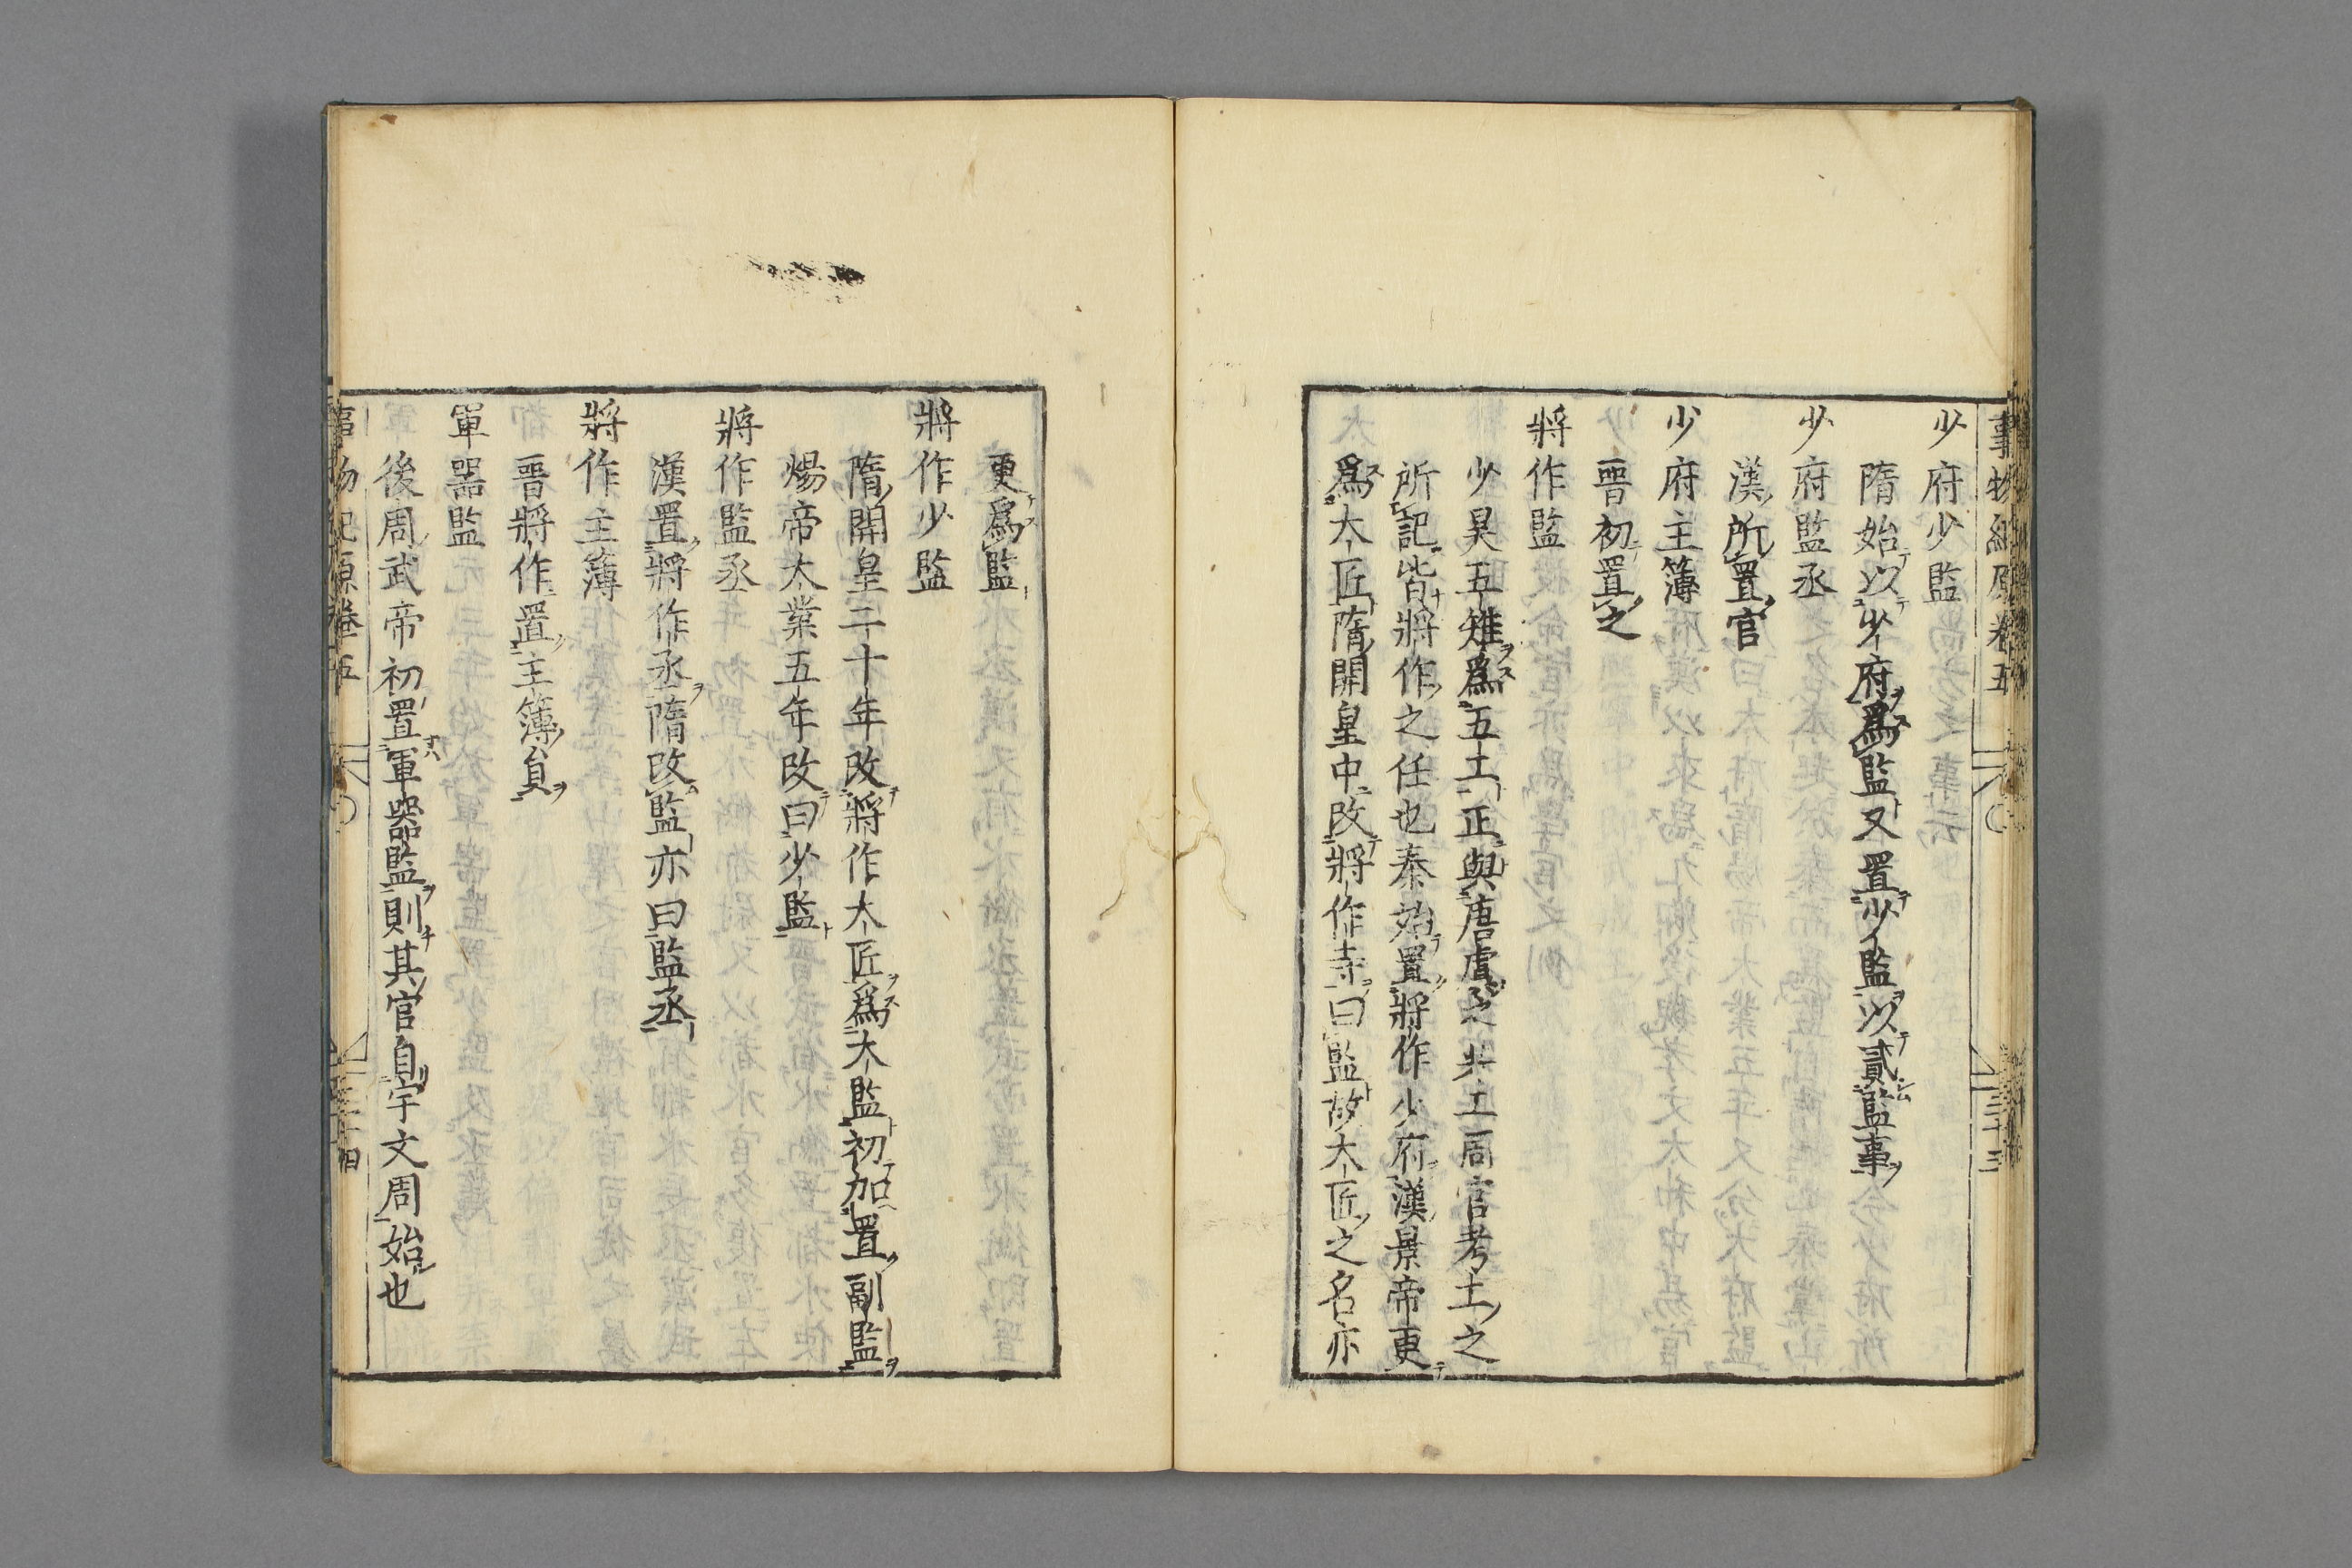 事物紀原卷五 三十三
少府少監
隋始以少府爲監又置少監以貳監事
少府監丞
漢所置官
少府主簿
晉初置之
將作監
少昊五雉爲五土正與唐虞之共工周官考土之
所記皆將作之任也秦始置將作少府漢景帝更
爲大匠隋開皇中改將作寺曰監故大匠之名亦
更爲監
將作少監
隋開皇二十年改將作大匠爲大監初加置副監
煬帝大業五年改曰少監
將作監丞
漢置將作丞隋改監亦曰監丞
將作主簿
晉將作置主簿員
軍器監
後周武帝初置軍器監則其官自宇文周始也
事物紀原卷五 三十四